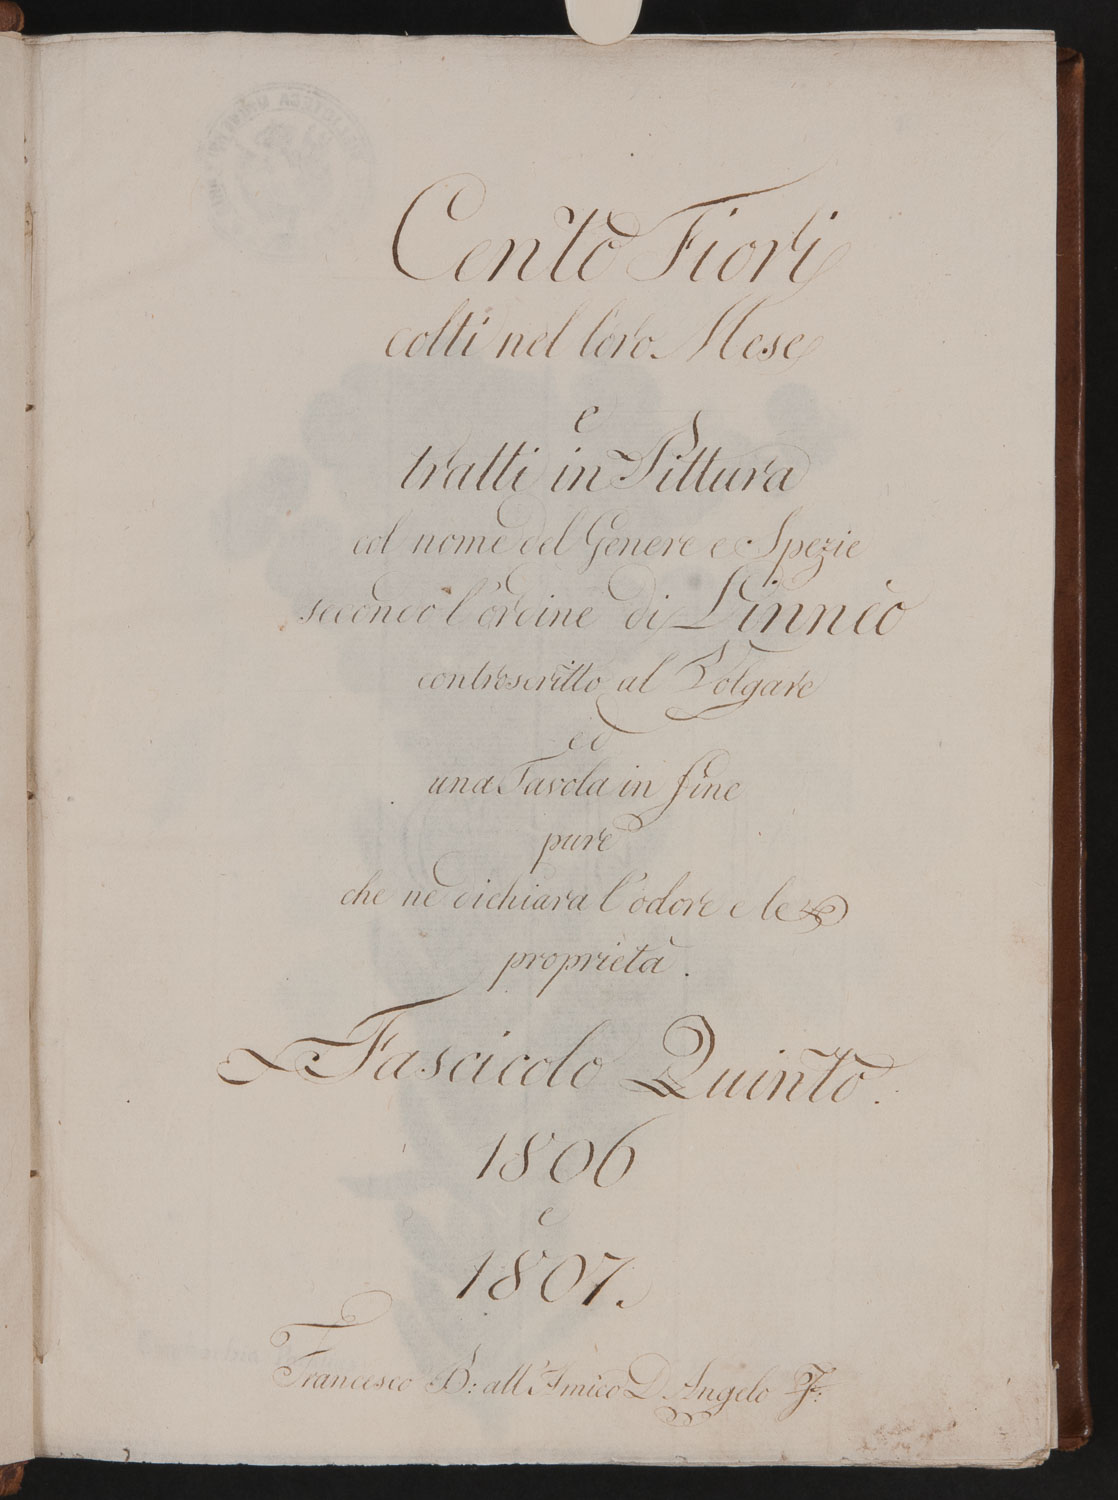 Cento Fiori
colti nel loro Mese
e
tratti in Pittura
col nome del Genere e Spezie
secondo l'ordine di Linnèo
controscritto al Volgare
ed
una Tavola in fine
pure
che ne dichiara l'odore e le
proprietà.
Fascicolo Quinto.
1806
e
1807.
Francesco B: all'Amico D. Angelo F: